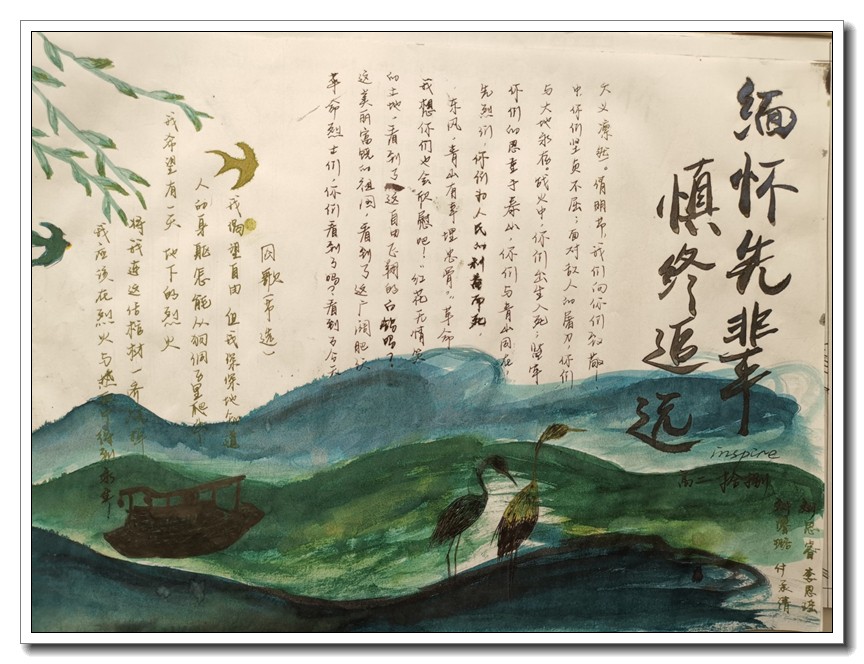 缅怀先辈
慎终追远
inspire
高二 拾捌
大义凛然。清明节,我们向你们致敬
中你们坚贞不屈;面对敌人的屠刀,你们
与大地永存。战火中,你们出生入死;监牢
你们的恩重于泰山,你们与青山同在,
先烈们,你们为人民的利益而死,
东风,青山有幸埋忠骨。"革命
我想你们也会欣慰吧!"红花无情
的土地,看到了这自由飞翔的白鸽吗?
这美丽富饶的祖国,看到了这广阔肥沃
革命烈士们,你们看到了吗?看到了今天
囚歌(节选)
我渴望自由 但我深深地知道
人的身躯怎能从狗洞子里爬出
我希望有一天 地下的烈火
将我连这活棺材一齐烧掉
我应该在烈火与热血中得到永生
刘思睿 李思瑶